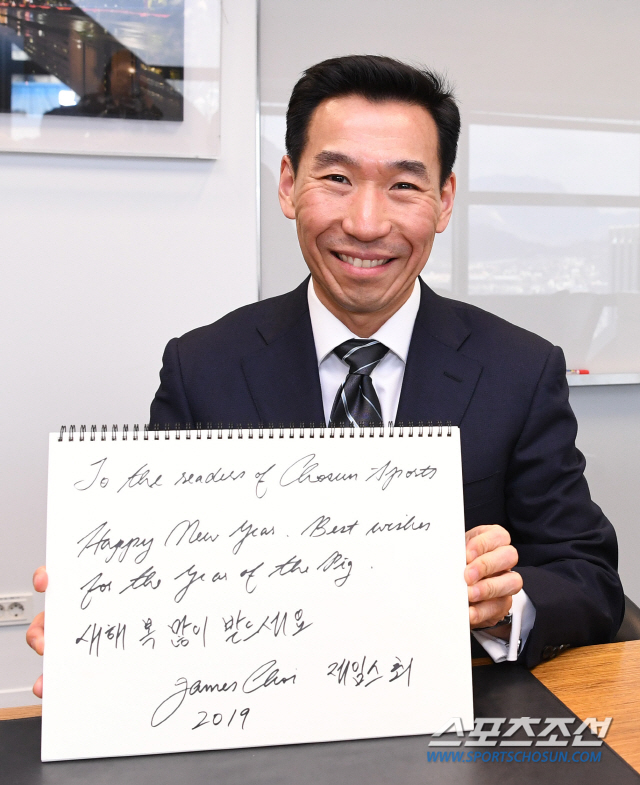 To the readers of Chosun Sports
Happy New Year. Best wishes
for the Year of the Pig.
새해 복 많이 받으세요
James Choi 제임스 최
2019
스포츠조선
WWW.SPORTSCHOSUN.COM